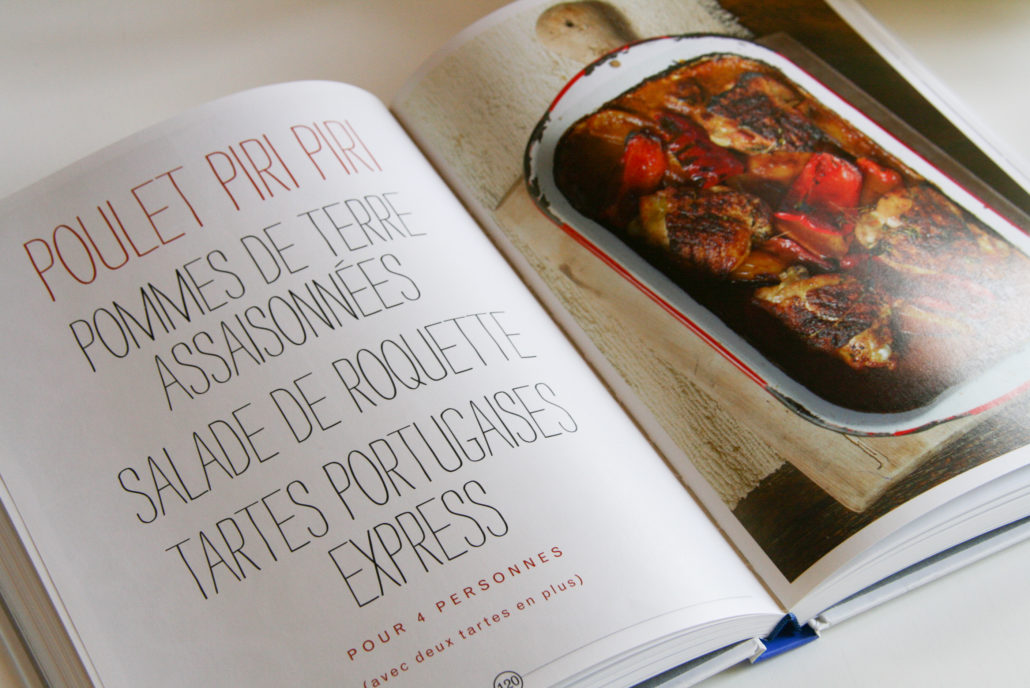 POULET PIRI PIRI
POMMES DE TERRE
ASSAISONNÉES
SALADE DE ROQUETTE
TARTES PORTUGAISES
EXPRESS
POUR 4 PERSONNES
(avec deux tartes en plus)
120